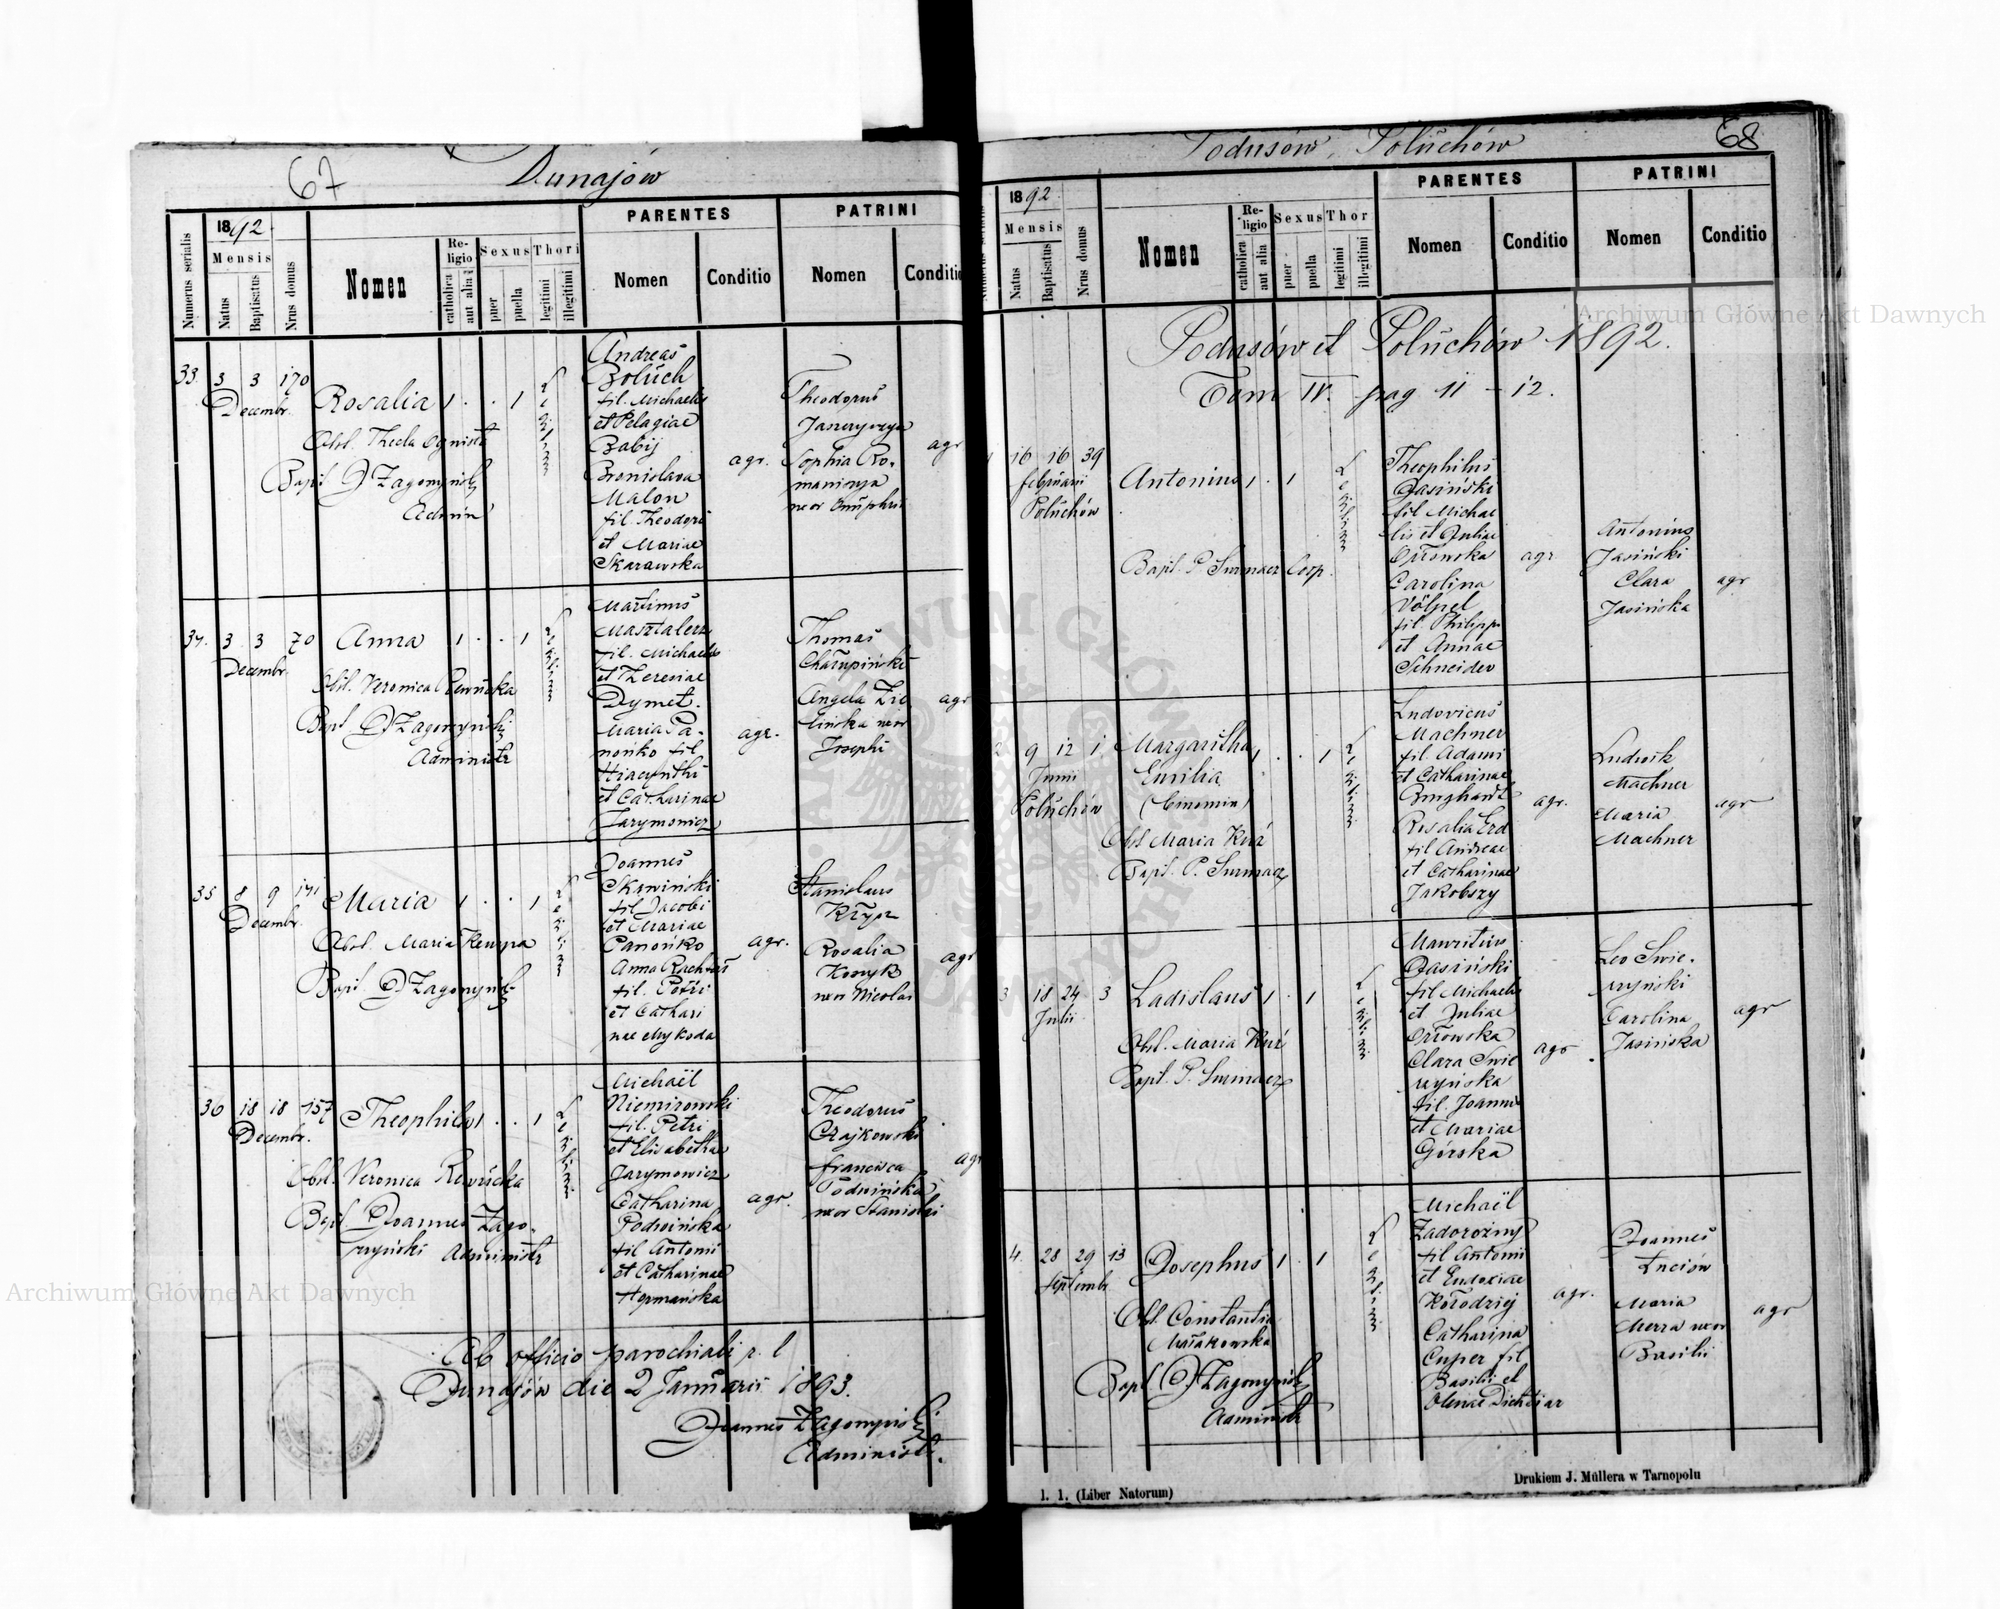 67
Dunajów
1892.
Numerus serialis
Mensis
Natus
Baptisatus
Nrus domus
Nomen
Religio
catholica
aut alia
Sexus
puer
puella
Thori
legitimi
illegitimi
PARENTES
Nomen
Conditio
PATRINI
Nomen
Conditio
33. 3 3 170
Decembr.
Rosalia 1 . . 1
Obst. Thecla
Bapt. J Zagorzyński
Admin
Andreas
Boluch
fil. Michaelis
et Pelagiae
Babij
Bronislava
Malon
fil. Theodori
et Mariae
Skarawska
agr.
Theodorus
Sophia Ro-
uxor Onuphrii
agr
34. 3 3 70
Decembr.
Anna 1 . . 1
Obst. Veronica
Bapt. J Zagorzyński
Administr
Martinus
Masztalerz
fil. Michaelis
et Theresiae
Dymet.
Maria Pa-
nońko fil
Hiacynthi
et Catharinae
Jarymowicz
agr.
Thomas
Chałupiński
Angela Zie
lińska uxor
Josephi
agr
35 8 9 171
Decembr.
Maria 1 . . 1
Obst. Maria Kempa
Bapt. J Zagorzyński
Joannes
Skawiński
fil Jacobi
et Mariae
Panońko
Anna
fil. Petri
et Cathari
nae Mykoda
agr.
Stanislaus
Rosalia
uxor Nicolai
agr
36 18 18 157
Decembr.
Theophila 1 . . 1
Obst. Veronica
Bapt. Joannes Zago-
rzyński Administr
Michaël
Niemirowski
fil. Petri
et Elisabethae
Jarymowicz
Catharina
Podwińska
fil Antonii
et Catharinae
Hermańska
agr.
Theodorus
Czajkowski
Francisca
Podwińska
uxor Stanislai
agr
Ab officio parochiali r. l
Dunajów die 2 Januarii 1893.
Joannes Zagorzyński
Administr.
68
Podusów, Poluchów
1892.
Numerus serialis
Mensis
Natus
Baptisatus
Nrus domus
Nomen
Religio
catholica
aut alia
Sexus
puer
puella
Thor
legitimi
illegitimi
PARENTES
Nomen
Conditio
PATRINI
Nomen
Conditio
Podusów et Poluchów 1892.
Tom IV. pag 11 - 12.
1 16 16 39
februarii
Poluchów
Antonius 1 . 1
Bapt. P. Surmacz Coop.
Theophilus
Jasiński
fil Michae
lis et Juliae
Orłowska
Carolina
Völpel
fil. Philippi
et Annae
Schneider
agr
Antonius
Jasiński
Clara
Jasińska
agr
2 9 12 1
Junii
Poluchów
Margaritha 1 . . 1
Emilia
(binomin)
Obst Maria Kuś
Bapt. P. Surmacz
Ludovicus
Machner
fil Adami
et Catharinae
Burghardt
Rosalia Erd
fil Andreae
et Catharinae
Jakobszy
agr.
Ludwik
Machner
Maria
Machner
agr
3 18 24 3
Julii
Ladislaus 1 . 1
Obst. Maria Kuś
Bapt. P. Surmacz
Mauritius
Jasiński
fil Michaelis
et Juliae
Orłowska
Clara Swie
rzyńska
fil. Joannis
et Mariae
Górska
agr
Leo Swie-
rzyński
Carolina
Jasińska
agr
4. 28 29 13
Septembr
Josephus 1 . 1
Obst. Constantia
Małakowska
Bapt. J Zagorzyński
Administr
Michaël
Zadorożny
fil Antonii
et Eudoxiae
Kołodziej
Catharina
Cuper fil
Basilii et
Olenae
agr.
Joannes
Maria
Merra uxor
Basilii
agr
l. 1. (Liber Natorum)
Drukiem J. Müllera w Tarnopolu
Archiwum Główne Akt Dawnych
Archiwum Główne Akt Dawnych